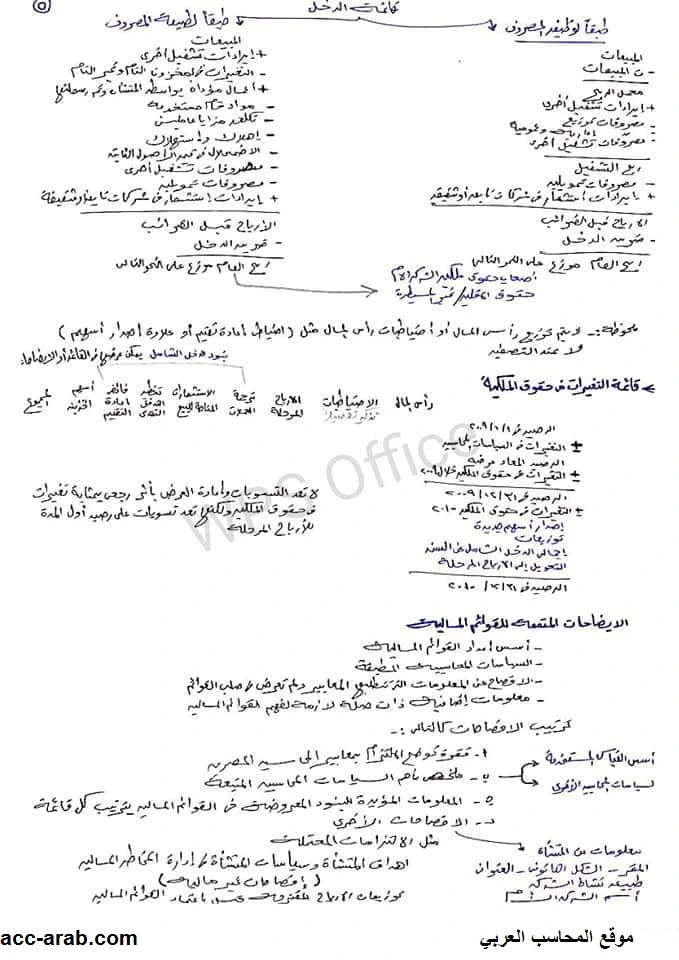 ٥
قائمة الدخل
طبقاً لوظيفة المصروف
المبيعات
- ت المبيعات
مجمل الربح
+ إيرادات تشغيل أخرى
- مصروفات توزيع
- إدارية وعمومية
- مصروفات تشغيل أخرى
ربح التشغيل
- مصروفات تمويلية
+ إيرادات استثمار فى شركات تابعة أو شقيقة
الأرباح قبل الضرائب
- ضريبة الدخل
ربح العام موزع على النحو التالى
أصحاب حقوق ملكية الشركة الأم
حقوق الأقلية / غير المسيطرة
طبقاً لطبيعة المصروف
المبيعات
+ إيرادات تشغيل أخرى
- التغيرات فى المخزون التام وغير التام
+ أعمال مؤداة بواسطة المنشأة وتم رسملتها
- مواد خام مستخدمة
- تكلفة مزايا عاملين
- إهلاك واستهلاك
- الاضمحلال فى قيمة الأصول الثابتة
- مصروفات تشغيل أخرى
- مصروفات تمويلية
+ إيرادات استثمار فى شركات تابعة أو شقيقة
الأرباح قبل الضرائب
- ضريبة الدخل
ربح العام موزع على النحو التالى
ملحوظة :- لا يتم توزيع رأس المال أو احتياطيات رأس المال مثل ( احتياطى إعادة تقييم أو علاوة إصدار أسهم )
إلا عند التصفية
بنود الدخل الشامل يمكن عرضها فى القائمة أو الإيضاحات
قائمة التغيرات فى حقوق الملكية
رأس المال الاحتياطيات الأرباح المرحلة ترجمة العملات الاستثمارات المتاحة للبيع تغطية التدفق النقدى فائض إعادة التقييم أسهم الخزينة المجموع
الرصيد فى ٢٠٠٩/١/١
± التغيرات فى السياسات المحاسبية
الرصيد المعاد عرضه
± التغيرات فى حقوق الملكية خلال ٢٠٠٩
الرصيد فى ٢٠٠٩/١٢/٣١
± التغيرات فى حقوق الملكية ٢٠١٠
إصدار أسهم جديدة
توزيعات
إجمالى الدخل الشامل عن السنة
التحويل إلى الأرباح المرحلة
الرصيد فى
لا تعد التسويات وإعادة العرض بأثر رجعى بمثابة تغيرات
فى حقوق الملكية ولكنها تعد تسويات على رصيد أول المدة
للأرباح المرحلة
WPS Office
الإيضاحات المتممة للقوائم المالية
- أسس إعداد القوائم المالية
- السياسات المحاسبية المطبقة
- الإفصاح عن المعلومات التى تتطلبها المعايير ولم تعرض فى صلب القوائم
- معلومات إضافية ذات صلة لازمة لفهم القوائم المالية
ترتيب الإفصاحات كالتالى :-
أ- فقرة توضح الالتزام بمعايير المحاسبة المصرية
ب- ملخص بأهم السياسات المحاسبية المتبعة
أسس القياس المستخدمة
السياسات المحاسبية الأخرى
ج- المعلومات المؤيدة للبنود المعروضة فى القوائم المالية بترتيب كل قائمة
د- الإفصاحات الأخرى
مثل الالتزامات المحتملة
أهداف المنشأة وسياسات المنشأة فى إدارة المخاطر المالية
( إفصاحات غير مالية )
توزيعات الأرباح المقترحة قبل اعتماد القوائم المالية
معلومات عن المنشأة
المقر - الشكل القانونى - العنوان
طبيعة نشاط الشركة
اسم الشركة الأم
acc-arab.com
موقع المحاسب العربي